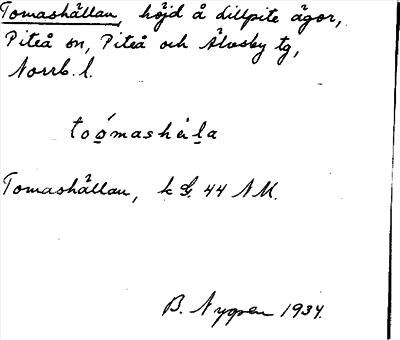 Tomashällan, höjd å Lillpite ägor,
Piteå sn, Piteå och Älvsby tg,
Norrb. l.
Tomashällan, k 44 NM.
B. Nygren 1934.